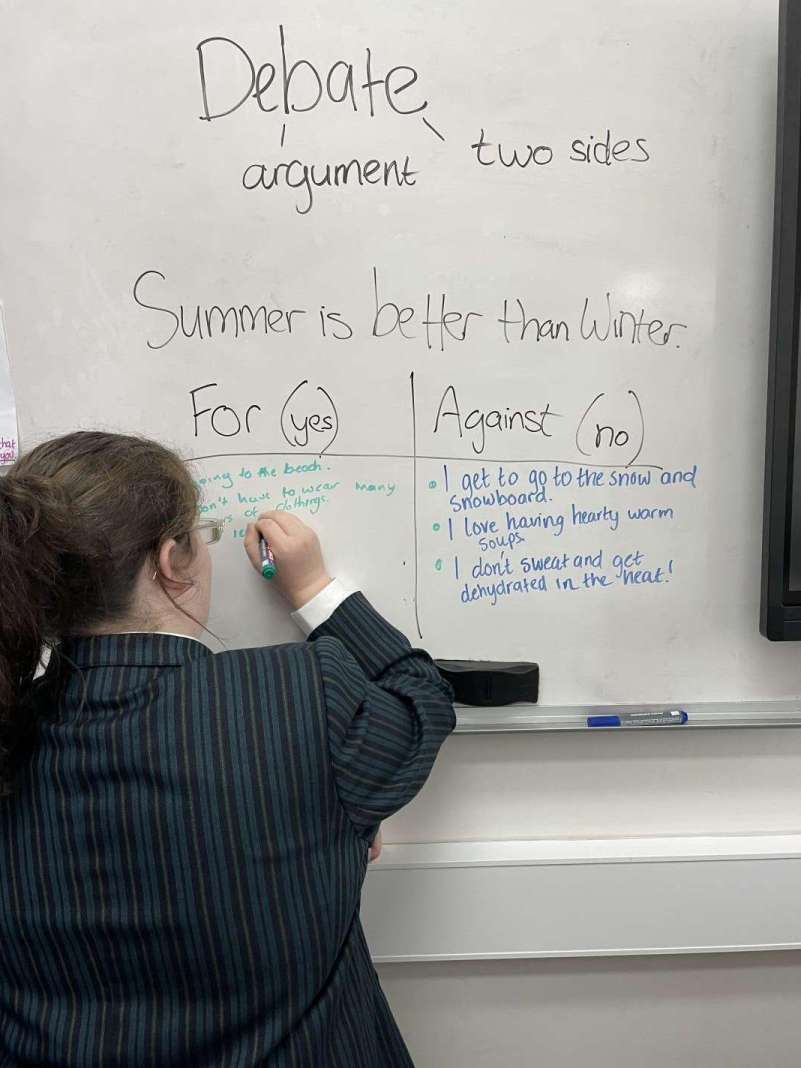 Debate
argument
two sides
Summer is better than Winter.
For (yes)
Against (no)
to the beach.
have to wear many
of clothings.
I get to go to the snow and
snowboard.
I love having hearty warm
soups
I don't sweat and get
dehydrated in the heat!
that
you